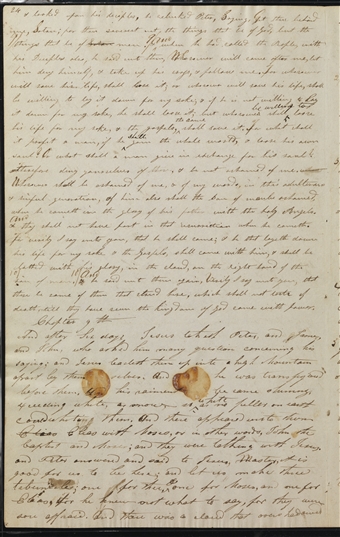 24 & looked on his disciples, he rebuked Peter, Saying, Get thee behind
me, Satan; for thou savorest not the things that be of God but the
things that be of men. And when he had called the People, with
his Disciples also, he said unto them, Whosoever will come after me, let
him deny himself, & take up his cross, & follow me. For whosoever
will save his life, shall lose it; or whosoever will save his life, shall
be willing to lay it down for my sake, & if he is not willing to lay
it down for my sake, he shall lose it; but whosoever shall be willing to lose
his life for my sake, & the gospel, the same shall save it. for what shall
it profit a man, if he shall gain the whole world, & lose his own
soul? Or what shall a man give in exchange for his soul?
therefore deny yourselves of these, & be not ashamed of me.
Whosoever shall be ashamed of me, & of my words, in this adulterous
& sinful generation, of him also shall the Son of man be ashamed,
when he cometh in the glory of his father with the holy Angels.
& they shall not have part in that resurrection when he cometh.
For verily I say unto you, that he shall come; & he that layeth down
his life for my sake & the Gospels, shall come with him, & shall be
clothed with his glory, in the cloud, on the right hand of the
Son of man. And he said unto them again, Verily I say unto you, that
there be some of them that stand here, which shall not taste of
death, till they have seen the kingdom of God come with power.
Chapter 9th
And after six days Jesus taketh Peter, and James,
and John, who asked him many questions concerning his
sayings; and Jesus leadeth them up into a high mountain
apart by themselves. And he was transfigured
before them. And his raiment became shining,
exceeding white, as snow; so white as no fuller on earth
could whiten them. And there appeared unto them
Elias with Moses, or in other words, John the
Baptist and Moses; and they were talking with Jesus.
and Peter answered and said to Jesus, Master, it is
good for us to be here; and let us make three
tabernacles; one for thee, one for Moses, an one for
Elias; for he knew not what to say, for they were
sore afraid. And there was a cloud that over shadowed